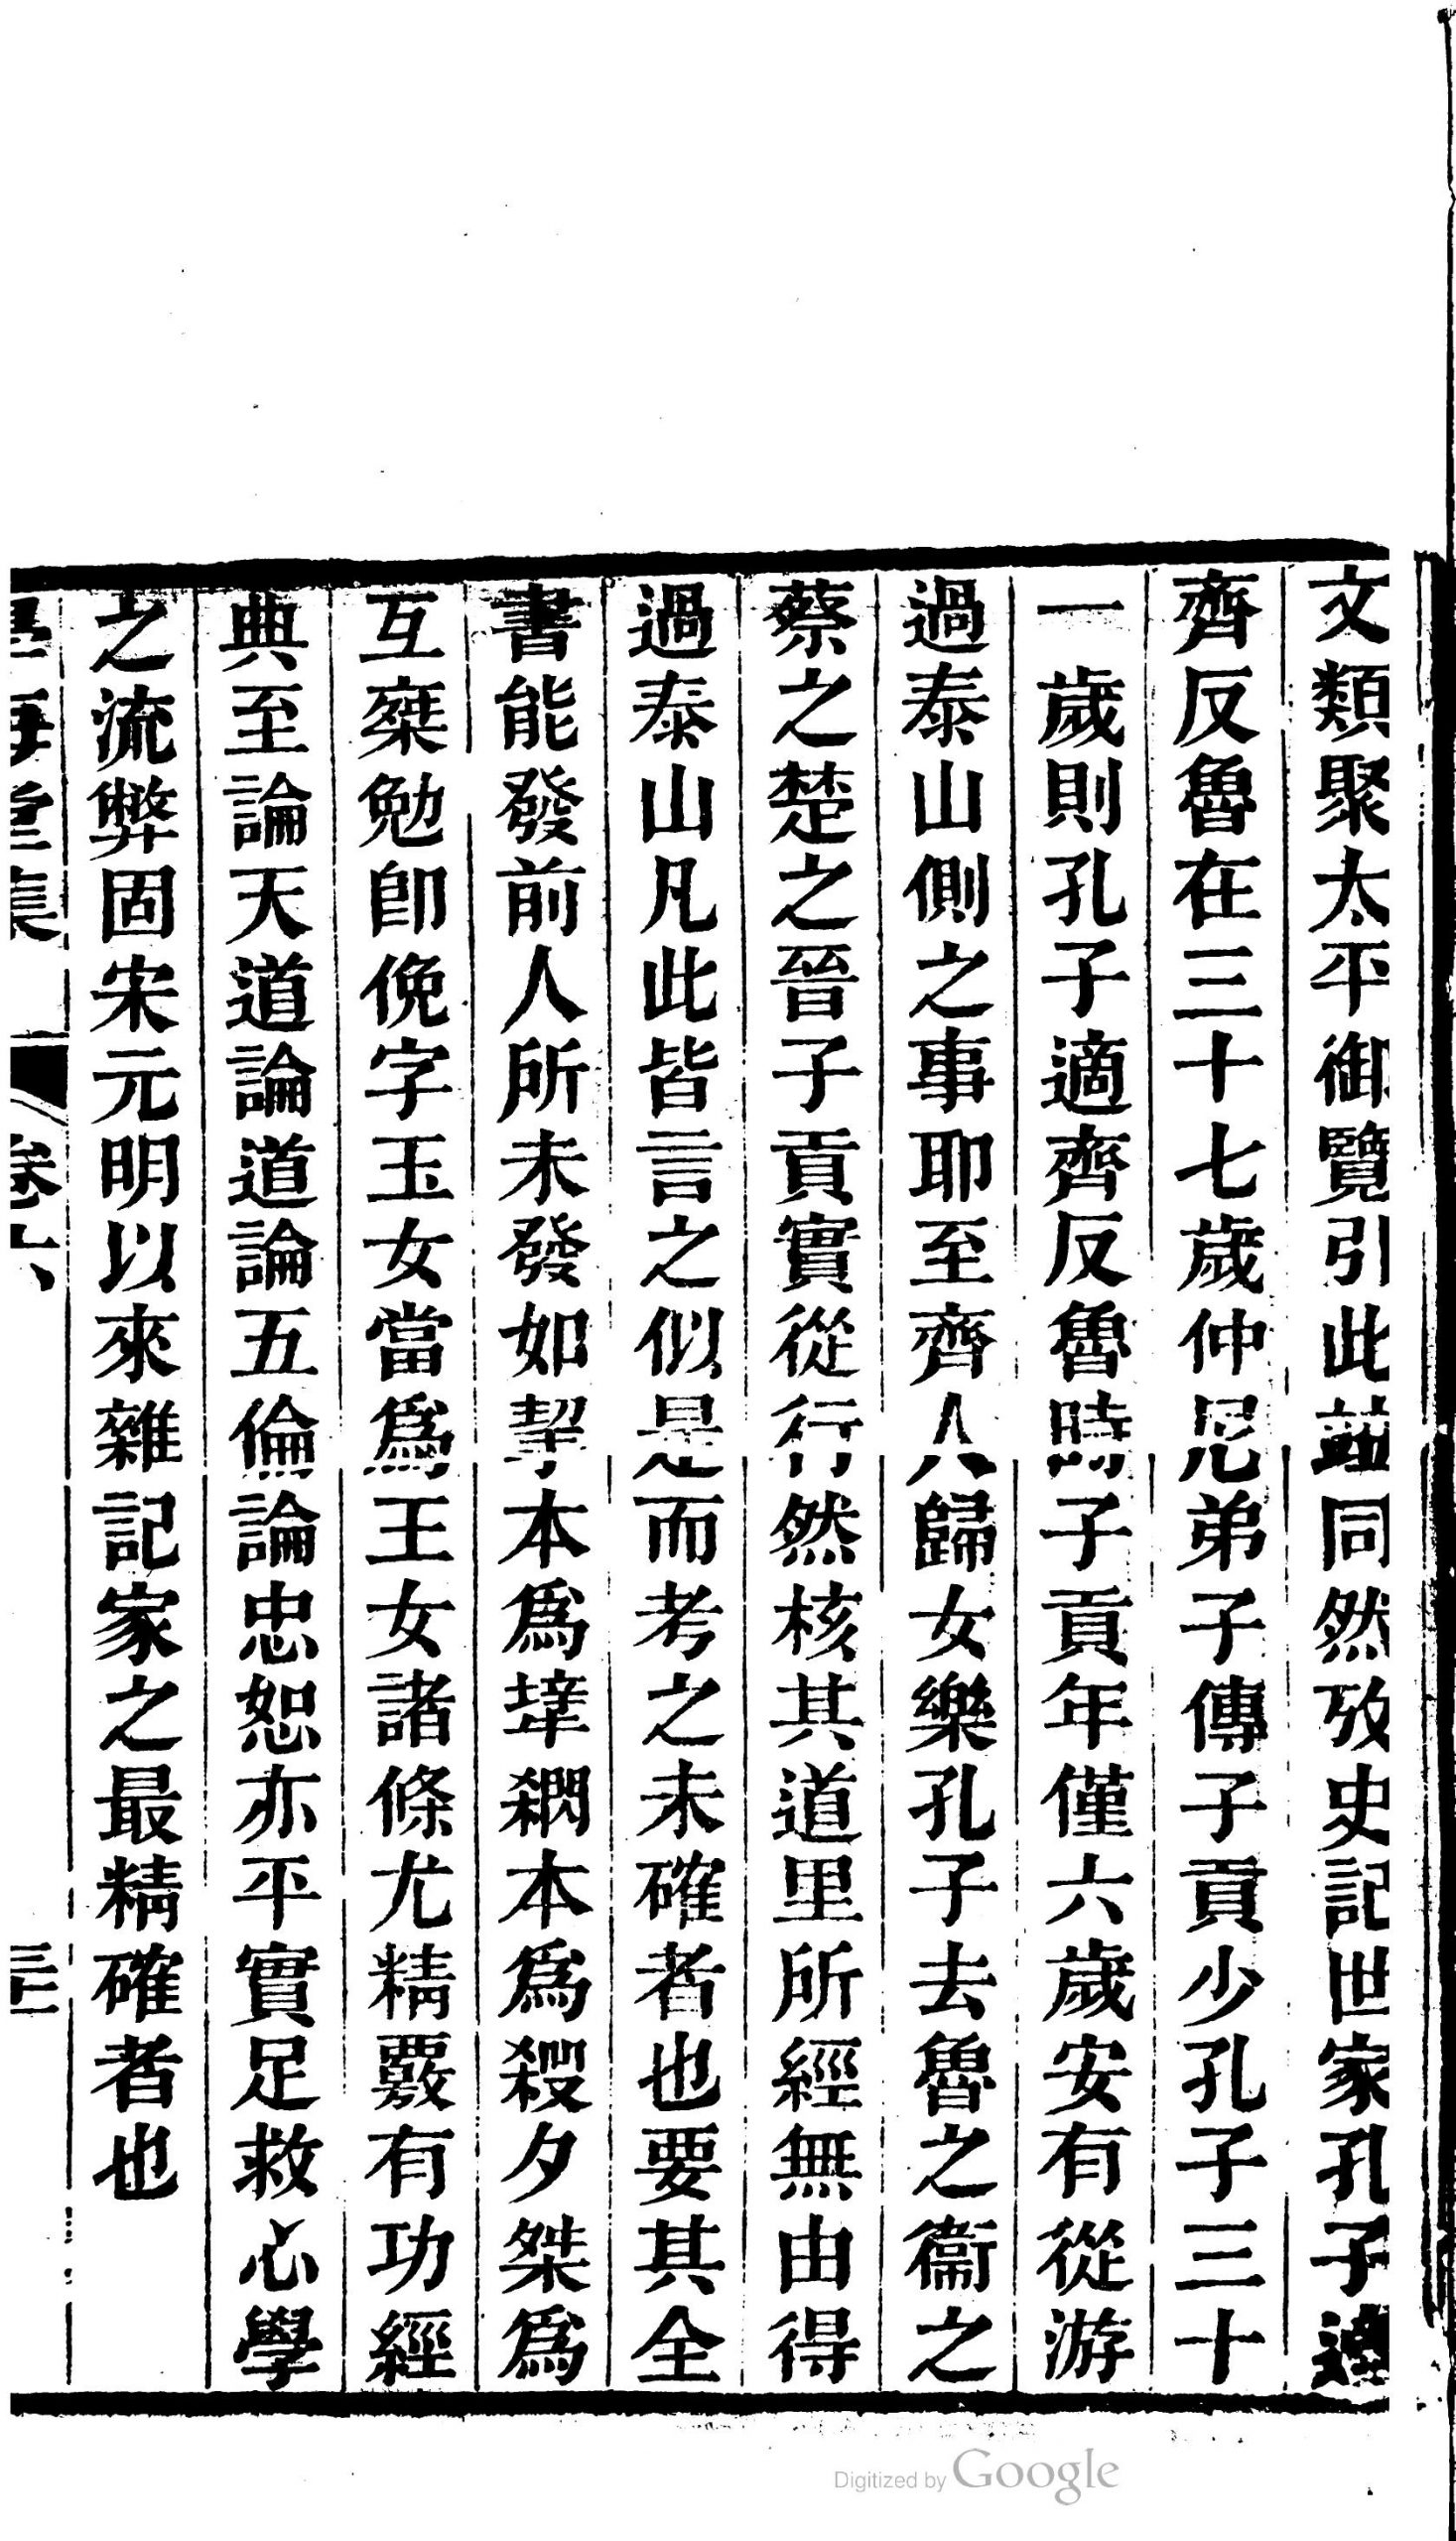 文類聚太平御覽引此竝同然攷史記世家孔子適
齊反魯在三十七歲仲尼弟子傳子貢少孔子三十
一歲則孔子適齊反魯時子貢年僅六歲安有從游
過泰山側之事耶至齊人歸女樂孔子去魯之衞之
蔡之楚之晉子貢實從行然核其道里所經無由得
過泰山凡此皆言之似是而考之未確者也要其全
書能發前人所未發如挈本爲㨖本爲殺夕桀爲
互㮚勉卽俛字玉女當爲王女諸條尤精覈有功經
典至論天道論道論五倫論忠恕亦平實足救心學
之流弊固宋元明以來雜記家之最精確者也
學海堂集 卷六 三十
Digitized by Google